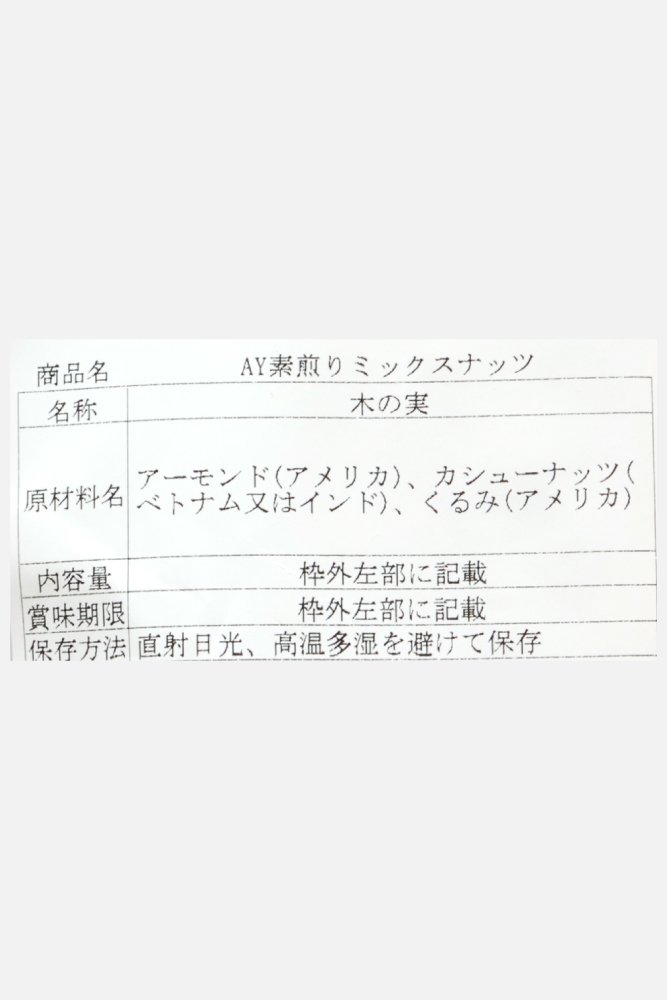 商品名 AY素煎りミックスナッツ
名称 木の実
原材料名 アーモンド(アメリカ)、カシューナッツ(
ベトナム又はインド)、くるみ(アメリカ)
内容量 枠外左部に記載
賞味期限 枠外左部に記載
保存方法 直射日光、高温多湿を避けて保存